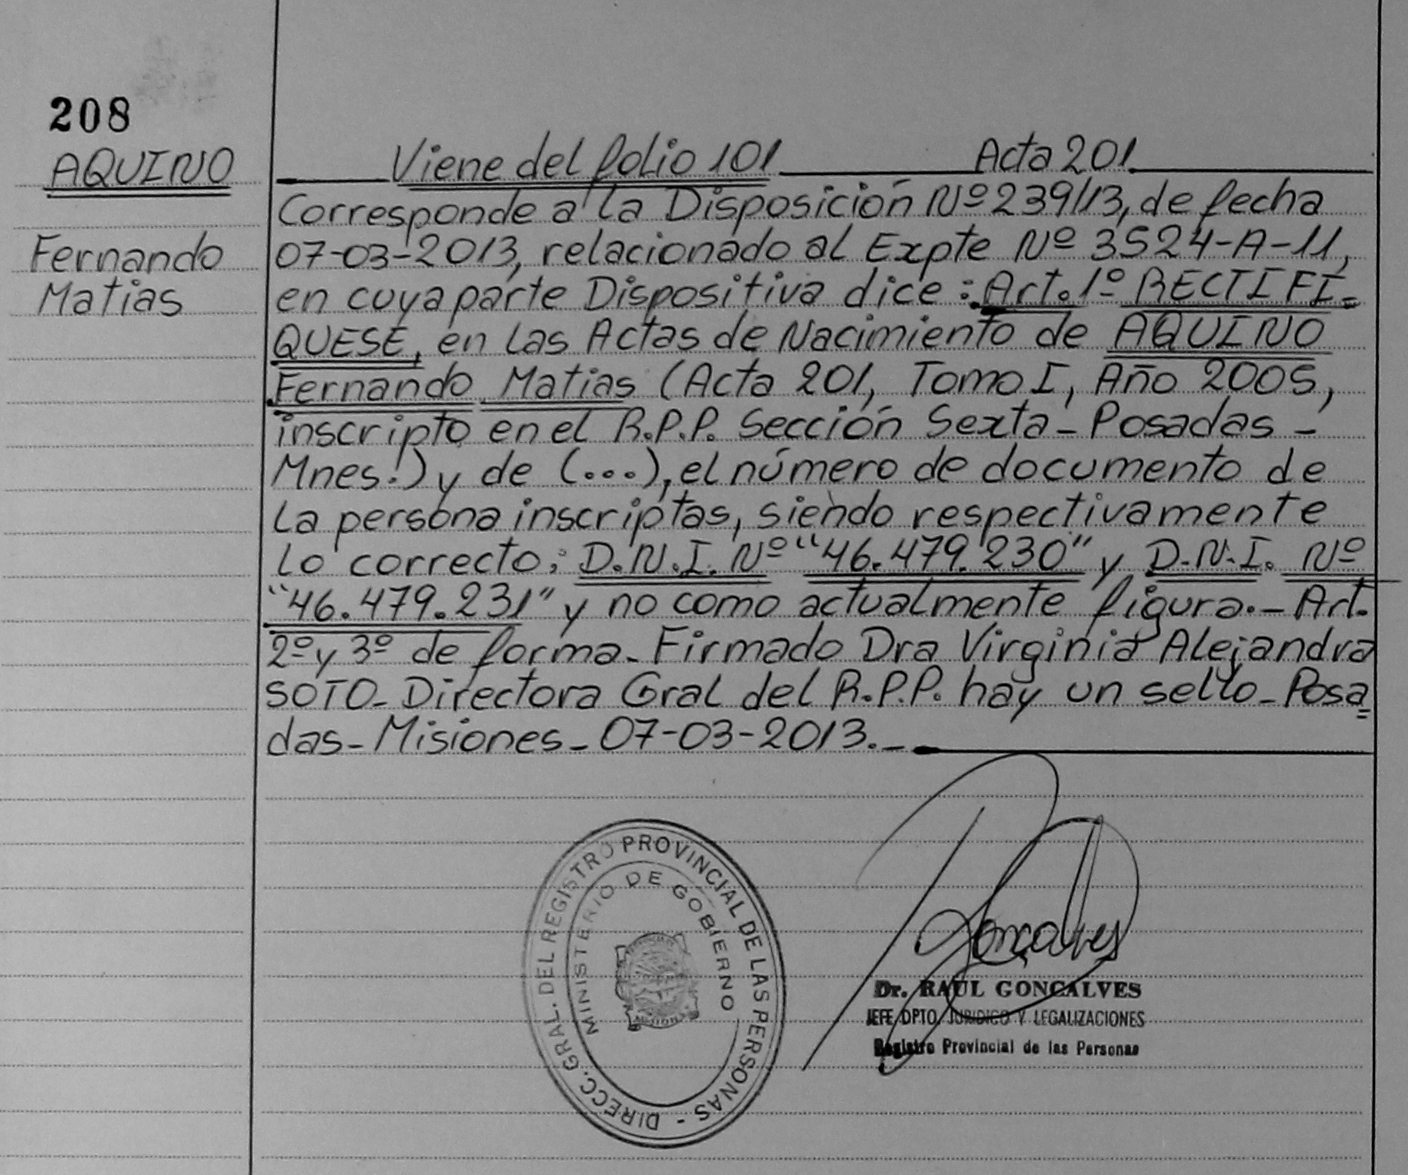 208
AQUINO
Fernando
Matias
Viene del folio 101 Acta 201
Corresponde a la Disposición Nº 239/13, de fecha
07-03-2013, relacionado al Expte Nº 3524-A-11,
en cuya parte Dispositiva dice: Art. 1º RECTIFI=
QUESE, en las Actas de Nacimiento de AQUINO
Fernando Matias (Acta 201, Tomo I, Año 2005,
inscripto en el R.P.P. Sección Sexta - Posadas -
Mnes.) y de (...), el número de documento de
la persona inscriptas, siendo respectivamente
lo correcto: D.N.I. Nº "46.479.230" y D.N.I. Nº
"46.479.231" y no como actualmente figura.- Art.
2º y 3º de forma- Firmado Dra Virginia Alejandra
SOTO- Directora Gral del R.P.P. hay un sello- Posa=
das- Misiones- 07-03-2013.-
DIRECC. GRAL. DEL REGISTRO PROVINCIAL DE LAS PERSONAS -
MINISTERIO DE GOBIERNO
MISIONES
Goncalves
Dr. RAUL GONCALVES
JEFE DPTO. JURIDICO Y LEGALIZACIONES
Registro Provincial de las Personas